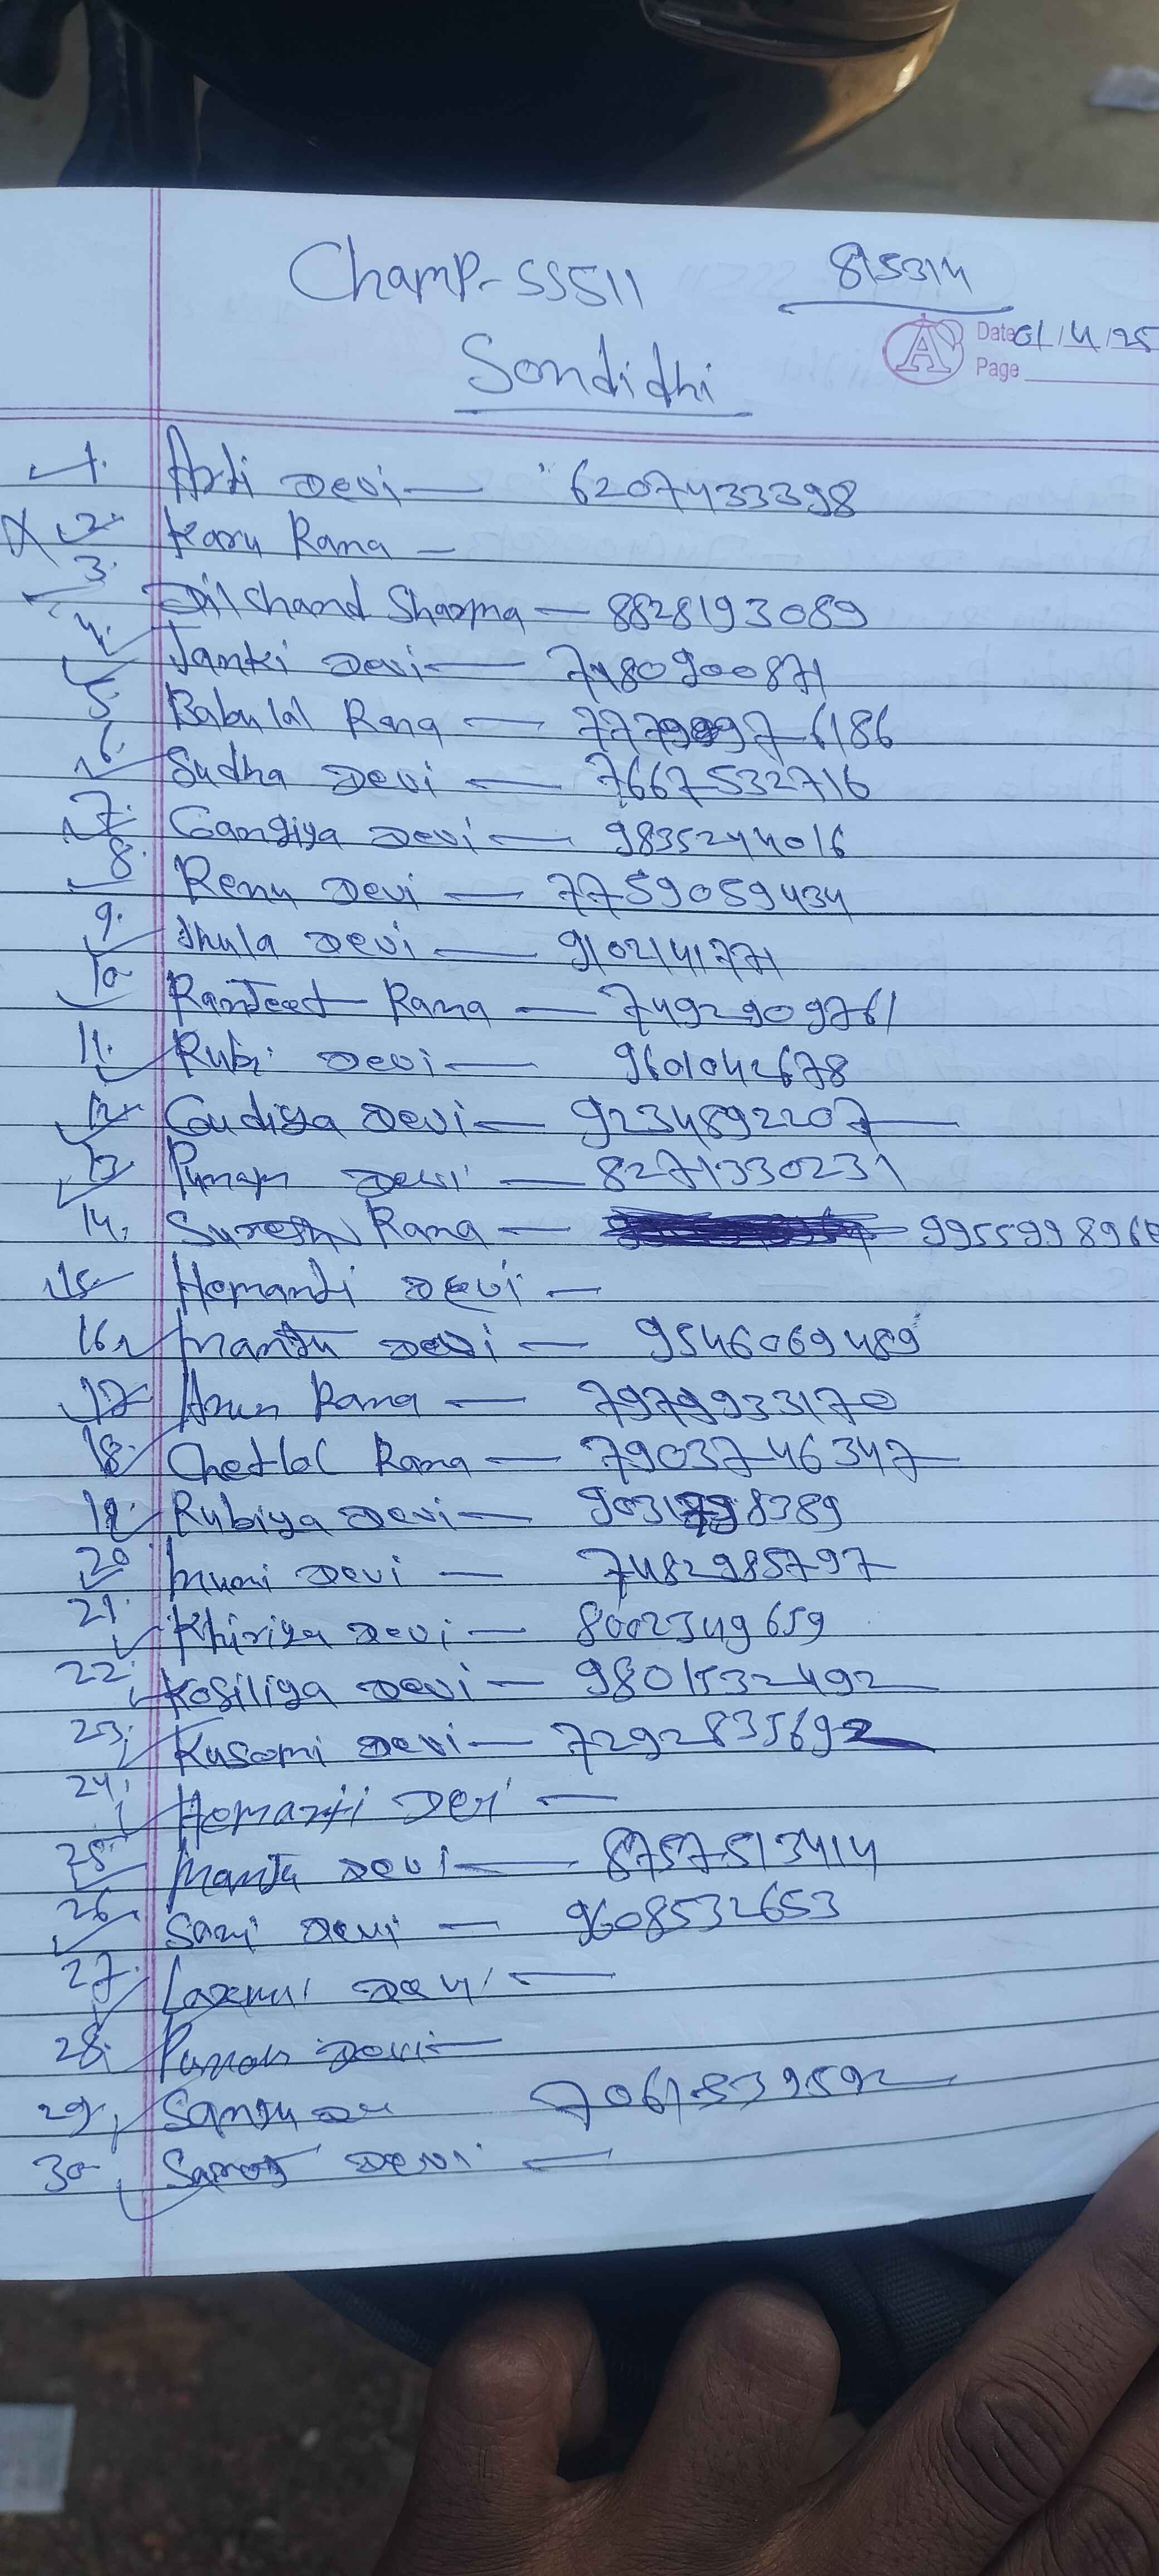 Champ-SS511 815314
Date 01/4/25
Page
Sondidhi
1. Arti Devi — 6207433398
2. Karu Rana —
3. Dilchand Sharma — 8828193089
4. Janki Devi — 7480900871
5. Babulal Rana —
6. Sudha Devi — 7667532716
7. Gangiya Devi — 9835244016
8. Renu Devi — 7759059434
9. Jhula Devi — 9102141771
10 Ranjeet Rana — 7492909761
11. Rubi Devi — 9601042678
12. Gudiya Devi — 9234892207
13 Punam Devi — 8271330231
14. Suresh Rana —
15 Hemanti Devi —
16. Manju Devi — 9546069489
17 Arun Rana — 7979933170
18. Chetlal Rana — 7903746347
19. Rubiya Devi —
20 Muni Devi — 7482985797
21. Khiriya Devi — 8002349659
22. Kosiliya Devi — 9801532492
23. Kusomi Devi — 7292835692
24. Devi —
25 Manju Devi — 8757513414
26. Devi — 9608532653
27. Devi —
28. Devi —
29. Sanju 7061839592
30 Saroj Devi —